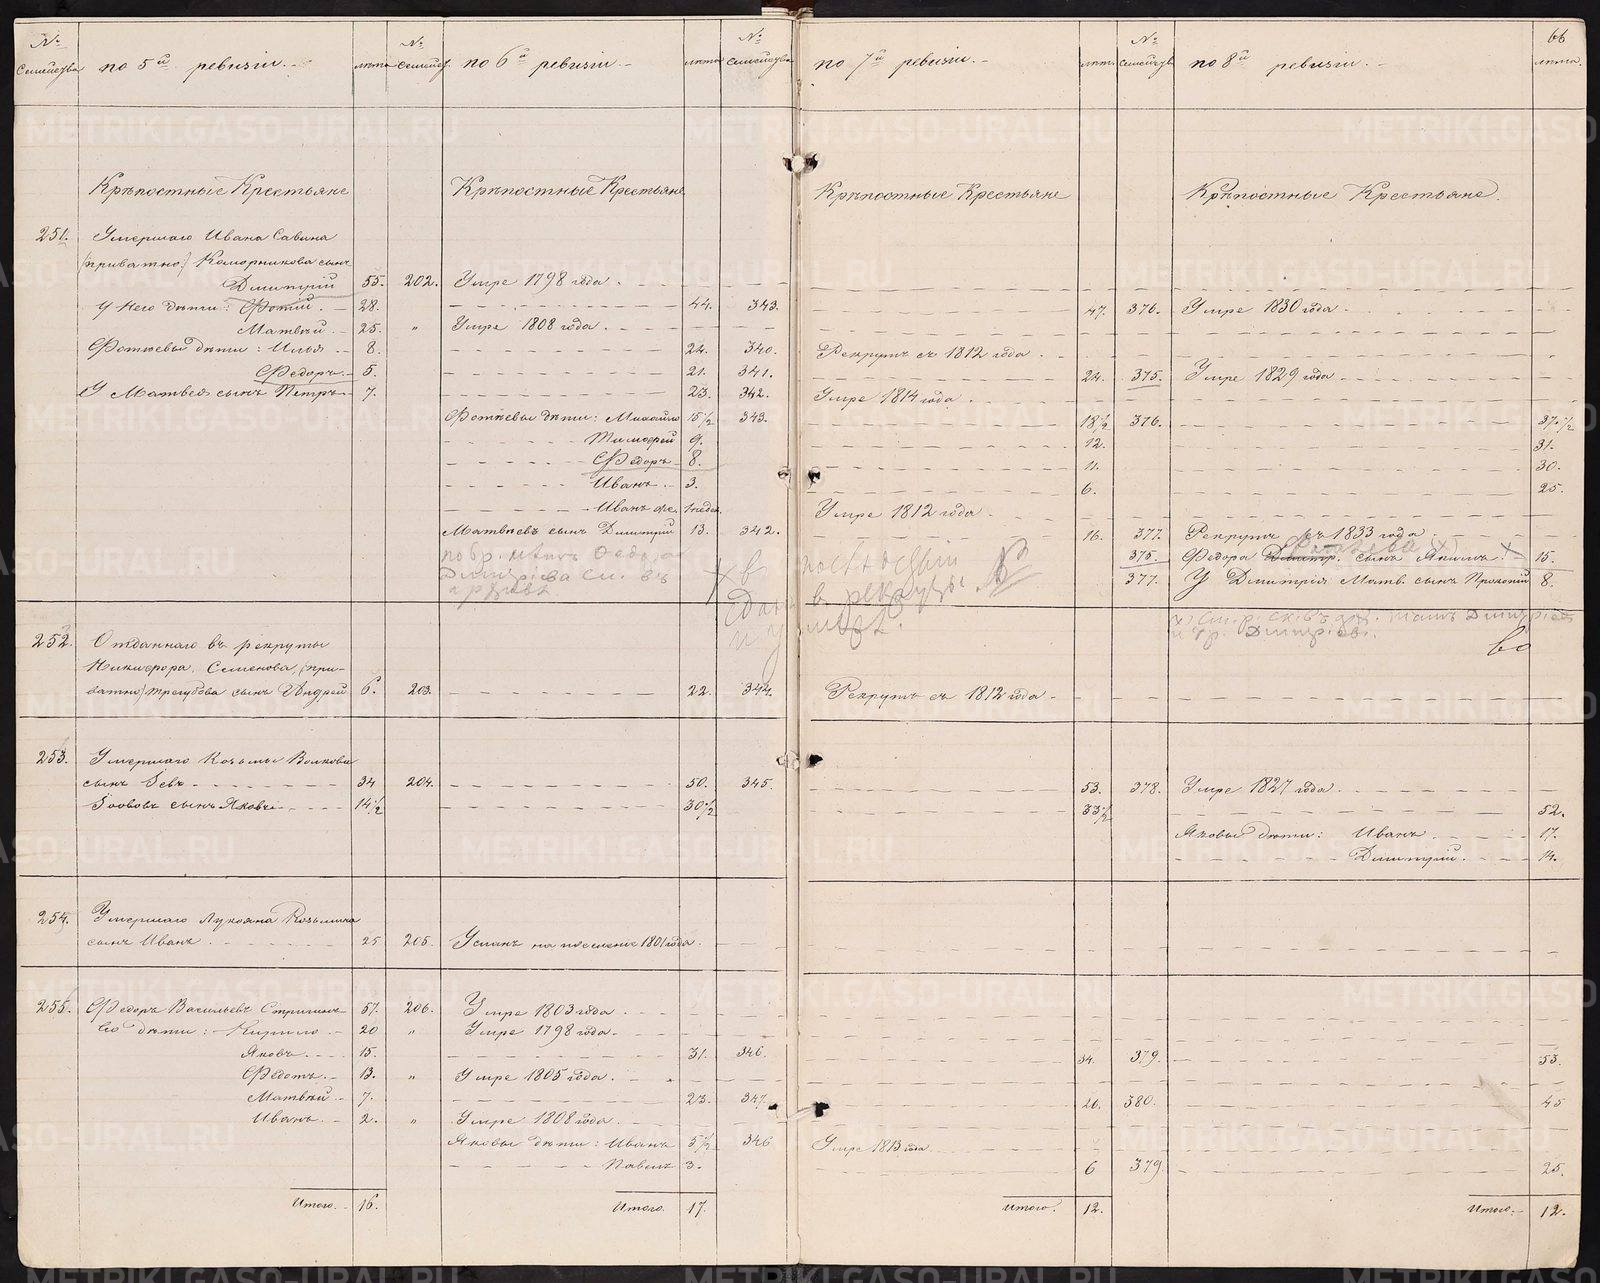 № семейства по 5й ревизіи. лѣта № семейс. по 6й ревизіи. лѣта № семейства по 7й ревизіи. лѣт. № семейств по 8й ревизіи. лѣта.
66
Крѣпостные Крестьяне Крѣпостные Крестьяне Крѣпостные Крестьяне Крѣпостные Крестьяне.
251. Умершаго Ивана Савина
(приватно:) Коморникова сынъ
Дмитрій 55. 202. Умре 1798 года.
У него дѣти: Фотій. 28. 44. 343. 47. 376. Умре 1830 года.
Матвѣй. 25. " Умре 1808 года.
Фотіевы дѣти: Илья 8. 24. 340. Рекрутъ съ 1812 года.
Федоръ. 5. 21. 341. 24. 375. Умре 1829 года
У Матвея сынъ Петръ 7. 23. 342. Умре 1814 года.
Фотіевы дѣти: Михайло 15 1/2 343. 18 1/2 376. 37 1/2
Тимофей 9. 12. 31.
Федоръ 8. 11. 30.
Иванъ. 3. 6. 25.
Иванъ же. 1 недел. Умре 1812 года.
Матвѣевъ сынъ Дмитрій 13. 342. 16. 377. Рекрутъ съ 1833 года
375. Федора Дмитр. сынъ Якимъ. 15.
377. У Дмитрія Матв. сынъ Прокопій 8.
252. Отданнаго въ рекруты
Никифора Семенова (при-
ватно) Трегубова сынъ Андрей 6. 203. 22. 344. Рекрутъ съ 1812 года.
253. Умершаго Козьмы Волкова
сынъ Іевъ 34 204. 50. 345. 53. 378. Умре 1827 года.
Іововъ сынъ Яковъ 14 1/2 30 1/2 33 1/2 52.
Яковы дѣти: Иванъ 17.
Дмитрій. 14.
254. Умершаго Лукояна Козьмина
сынъ Иванъ. 25 205. Усланъ на поселеніе 1801 года.
255. Федоръ Васильевъ 57. 206. Умре 1803 года.
Его дѣти: Кирило. 20 " Умре 1798 года.
Яковъ. 15. 31. 346. 34. 379. 53.
Федотъ. 13. " Умре 1805 года.
Матвѣй 7. 23. 347. 26. 380. 45
Иванъ. 2. " Умре 1808 года.
Яковы дѣти: Иванъ 5 1/2 346 Умре 1813 года.
Павелъ 3. 6 379. 25.
Итого. 16. Итого. 17. Итого. 12. Итого. 12.
METRIKI.GASO-URAL.RU